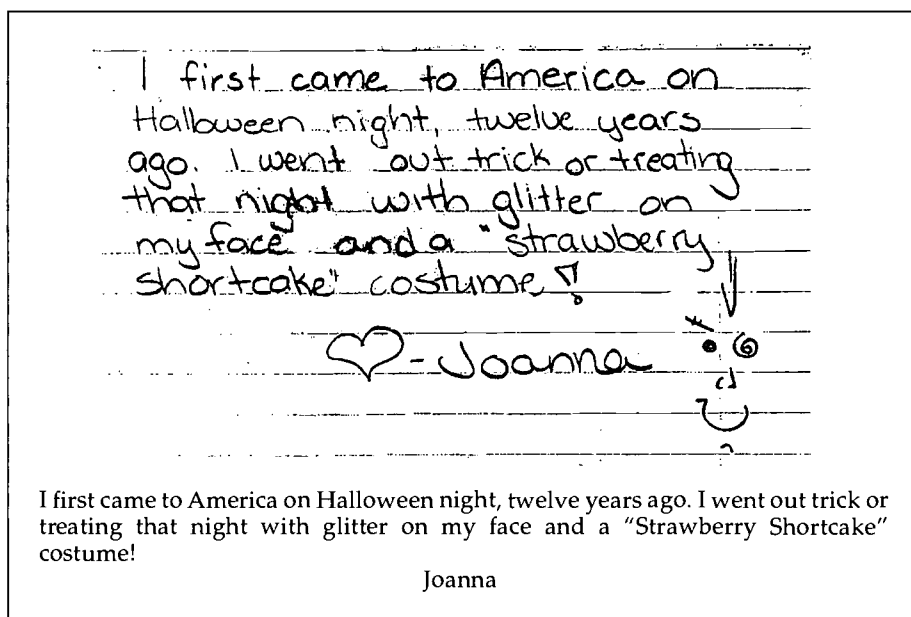 I first came to America on
Halloween night, twelve years
ago. I went out trick or treating
that night with glitter on
my face and a "strawberry
shortcake" costume!
- Joanna
I first came to America on Halloween night, twelve years ago. I went out trick or
treating that night with glitter on my face and a “Strawberry Shortcake”
costume!
Joanna